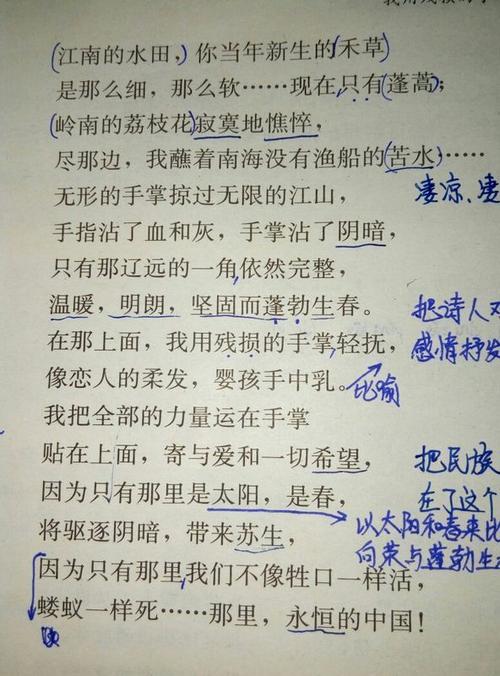 我用残损的手
江南的水田，你当年新生的禾草
是那么细，那么软……现在只有蓬蒿；
岭南的荔枝花寂寞地憔悴，
尽那边，我蘸着南海没有渔船的苦水……
凄凉、凄
无形的手掌掠过无限的江山，
手指沾了血和灰，手掌沾了阴暗，
只有那辽远的一角依然完整，
温暖，明朗，坚固而蓬勃生春。
把诗人
在那上面，我用残损的手掌轻抚，
感情抒发
像恋人的柔发，婴孩手中乳。
比喻
我把全部的力量运在手掌
贴在上面，寄与爱和一切希望，
把民族
因为只有那里是太阳，是春，
在了这个
将驱逐阴暗，带来苏生，
以太阳和春来比
向荣与蓬勃生
因为只有那里我们不像牲口一样活，
蝼蚁一样死……那里，永恒的中国！